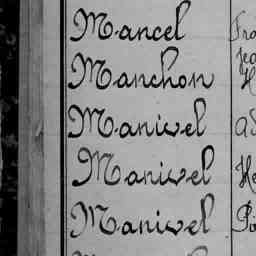 Mancel Fra
Manchon
Manivel
Manivel He
Manivel